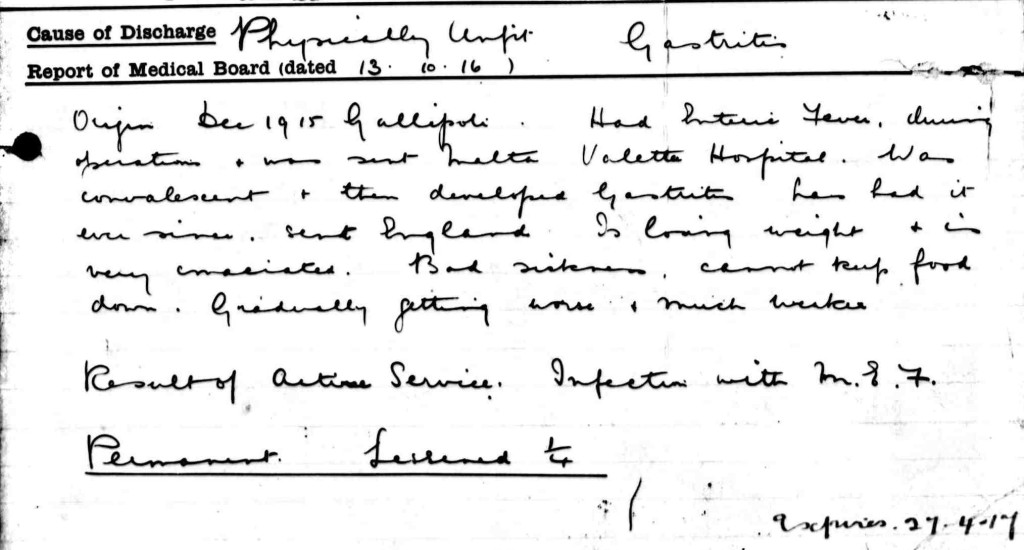 Cause of Discharge Physically Unfit Gastritis
Report of Medical Board (dated 13. 10. 16 )
Origin Dec 1915 Gallipoli. Had Enteric Fever, during
operations + was sent Malta Valetta Hospital. Was
convalescent + then developed Gastritis has had it
ever since. Sent England Is losing weight + is
very emaciated. Bad sickness, cannot keep food
down. Gradually getting worse + much weaker
Result of Active Service. Infection with M.E.F.
Permanent. Lessened 1/4
Expires. 27-4-17